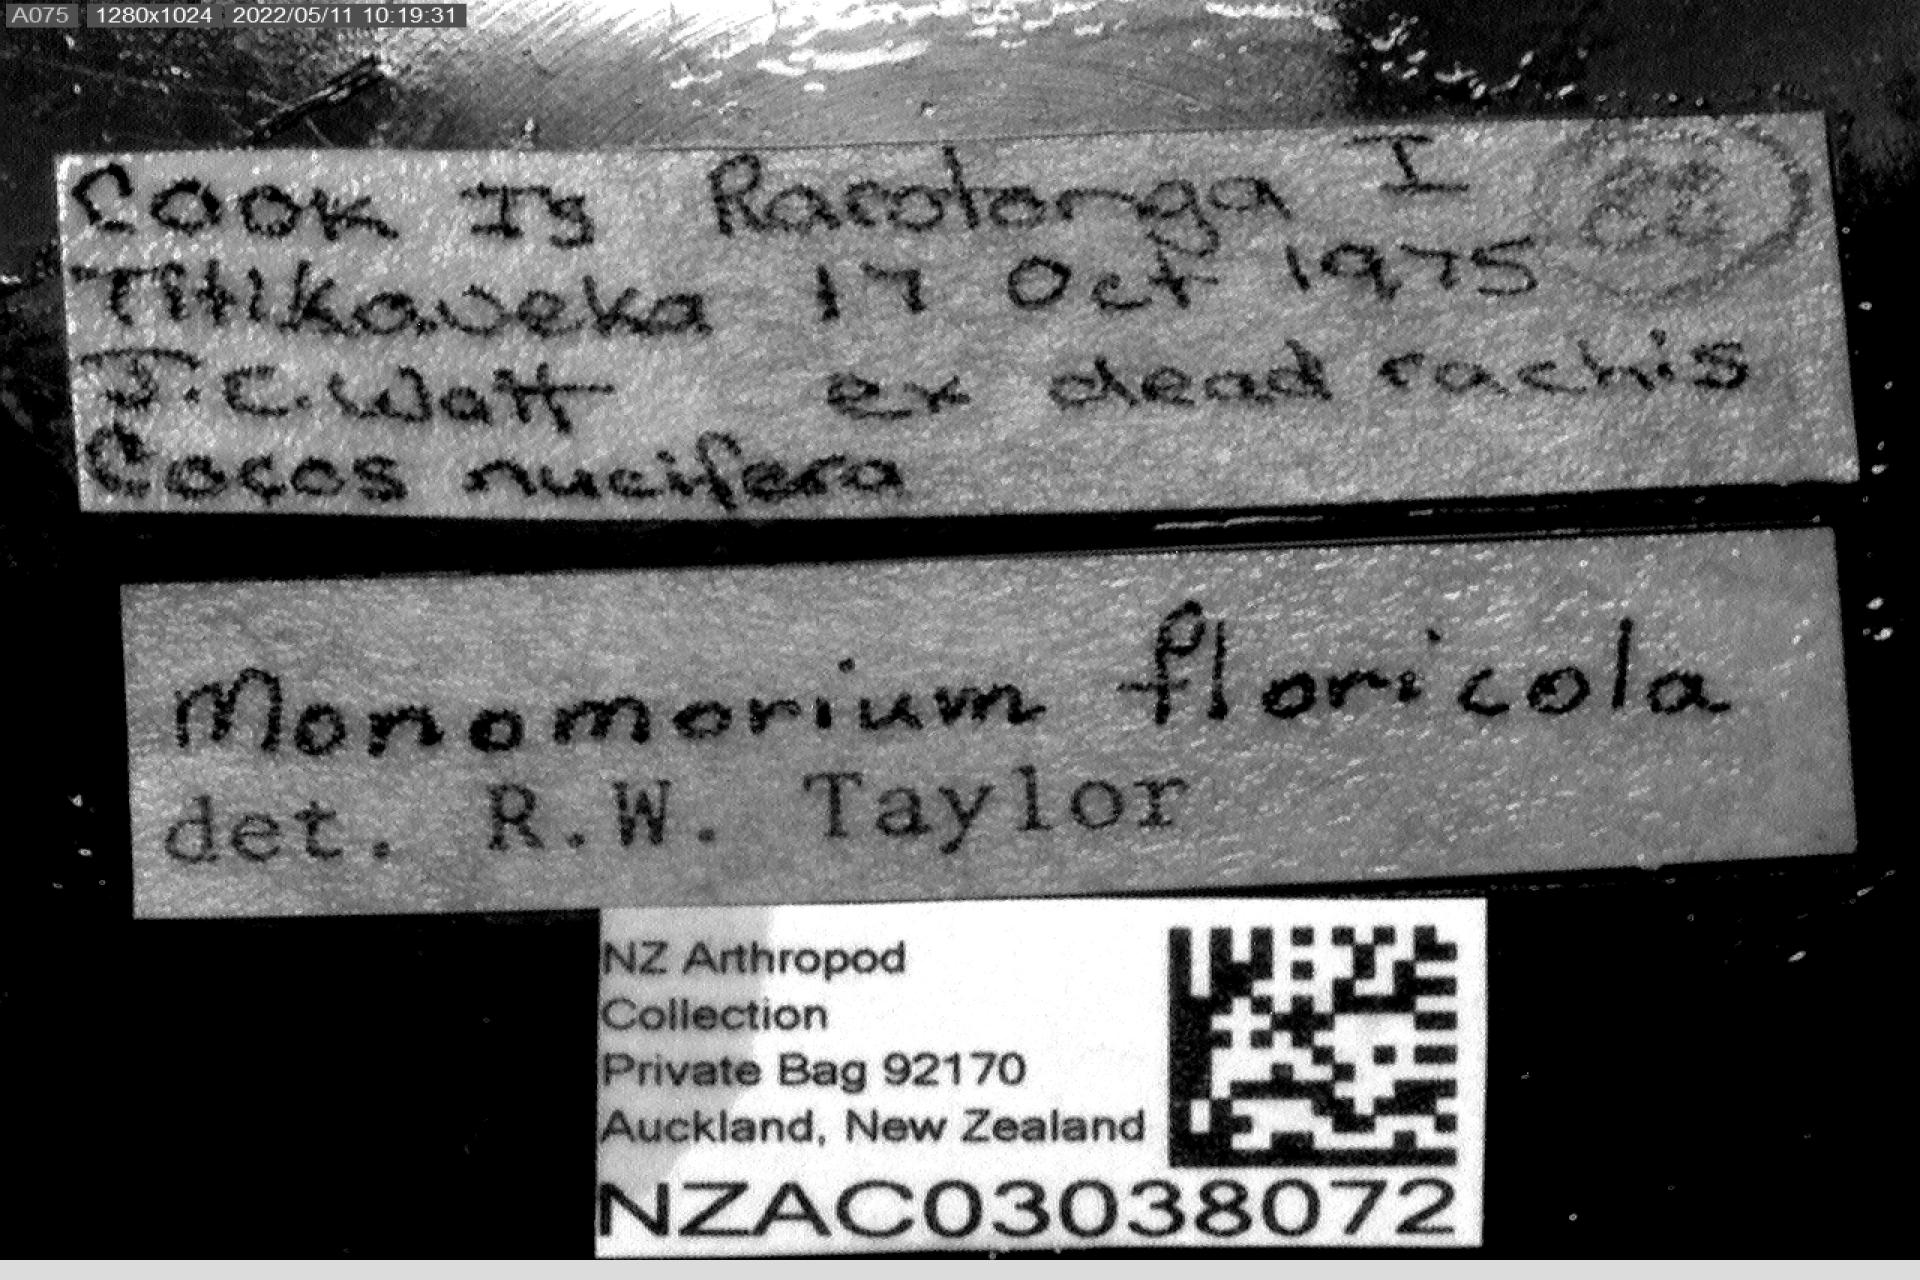 A075 1280x1024 2022/05/11 10:19:31
Cook Is Rarotonga I
Titikaveka 17 Oct 1975
J.C. Watt ex dead rachis
Cocos nucifera
Monomorium floricola
det. R.W. Taylor
NZ Arthropod
Collection
Private Bag 92170
Auckland, New Zealand
NZAC03038072